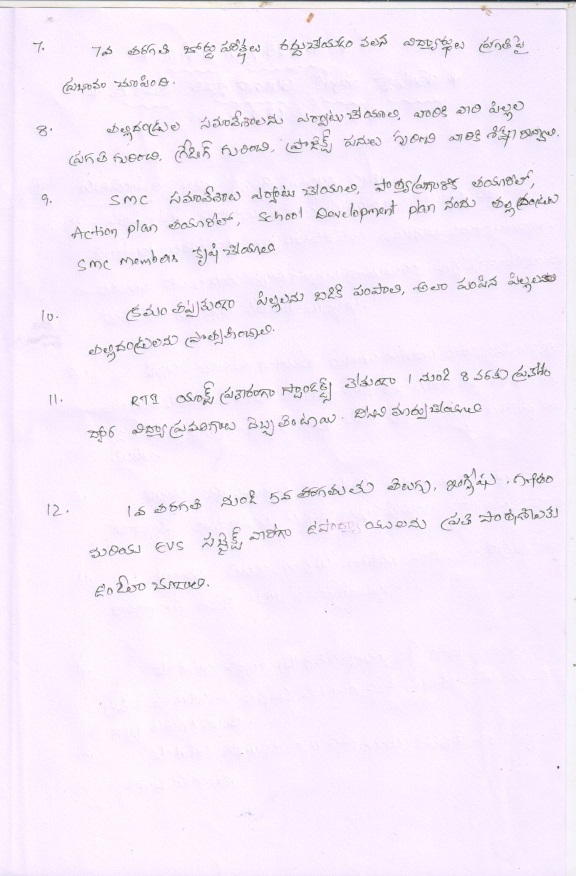 7. 7వ తరగతి బోర్డు పరీక్షలు రద్దుచేయడం వలన విద్యార్థుల ప్రగతిపై
ప్రభావం చూపింది.
8. తల్లిదండ్రుల సమావేశాలను ఏర్పాటు చేయాలి, వారికి వారి పిల్లల
ప్రగతి గురించి, గ్రేడింగ్ గురించి, ప్రాజెక్ట్ పనుల గురించి వారికి శిక్షణ ఇవ్వాలి.
9. SMC సమావేశాలు ఏర్పాటు చేయాలి, పాఠ్యప్రణాళిక తయారీలో,
Action plan తయారీలో, School Development plan నందు తల్లిదండ్రులు
SMC Members కృషి చేయాలి
10. క్రమం తప్పకుండా పిల్లలను బడికి పంపాలి, అలా పంపిన పిల్లలను
తల్లిదండ్రులను ప్రోత్సహించాలి.
11. RTE యాక్ట్ ప్రకారంగా స్టాండర్డ్స్ లేకుండా 1 నుండి 8 వరకు ప్రవేశం
ద్వారా విద్యా ప్రమాణాలు దెబ్బతింటాయి. దీనిని మార్పు చేయాలి
12. 1వ తరగతి నుండి 5వ తరగతులకు తెలుగు, ఇంగ్లీషు, గణితం
మరియు EVS సబ్జెక్ట్ వారీగా ఉపాధ్యాయులను ప్రతి పాఠశాలకు
ఉండేలా చూడాలి.